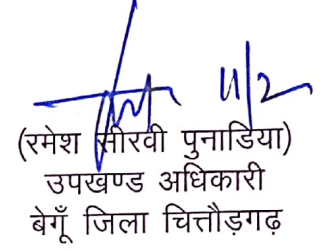 11/2
(रमेश सीरवी पुनाडिया)
उपखण्ड अधिकारी
बेगूँ जिला चित्तौड़गढ़